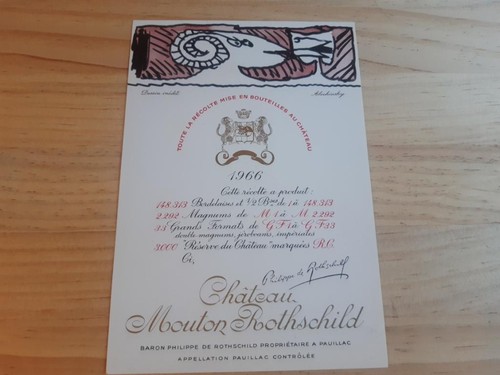 Dessin inédit Alechinsky
TOUTE LA RÉCOLTE MISE EN BOUTEILLES AU CHÂTEAU
1966
Cette récolte a produit :
148.313 Bordelaises et 1/2 Bses de 1 à 148.313
2.292 Magnums de M 1 à M 2.292
33 Grands Formats de G F 1 à G F 33
double magnums, jéroboams, impériales
3000 "Réserve du Château" marquées R.C.
Ci,
Philippe de Rothschild
Château
Mouton Rothschild
BARON PHILIPPE DE ROTHSCHILD PROPRIÉTAIRE A PAUILLAC
APPELLATION PAUILLAC CONTRÔLÉE